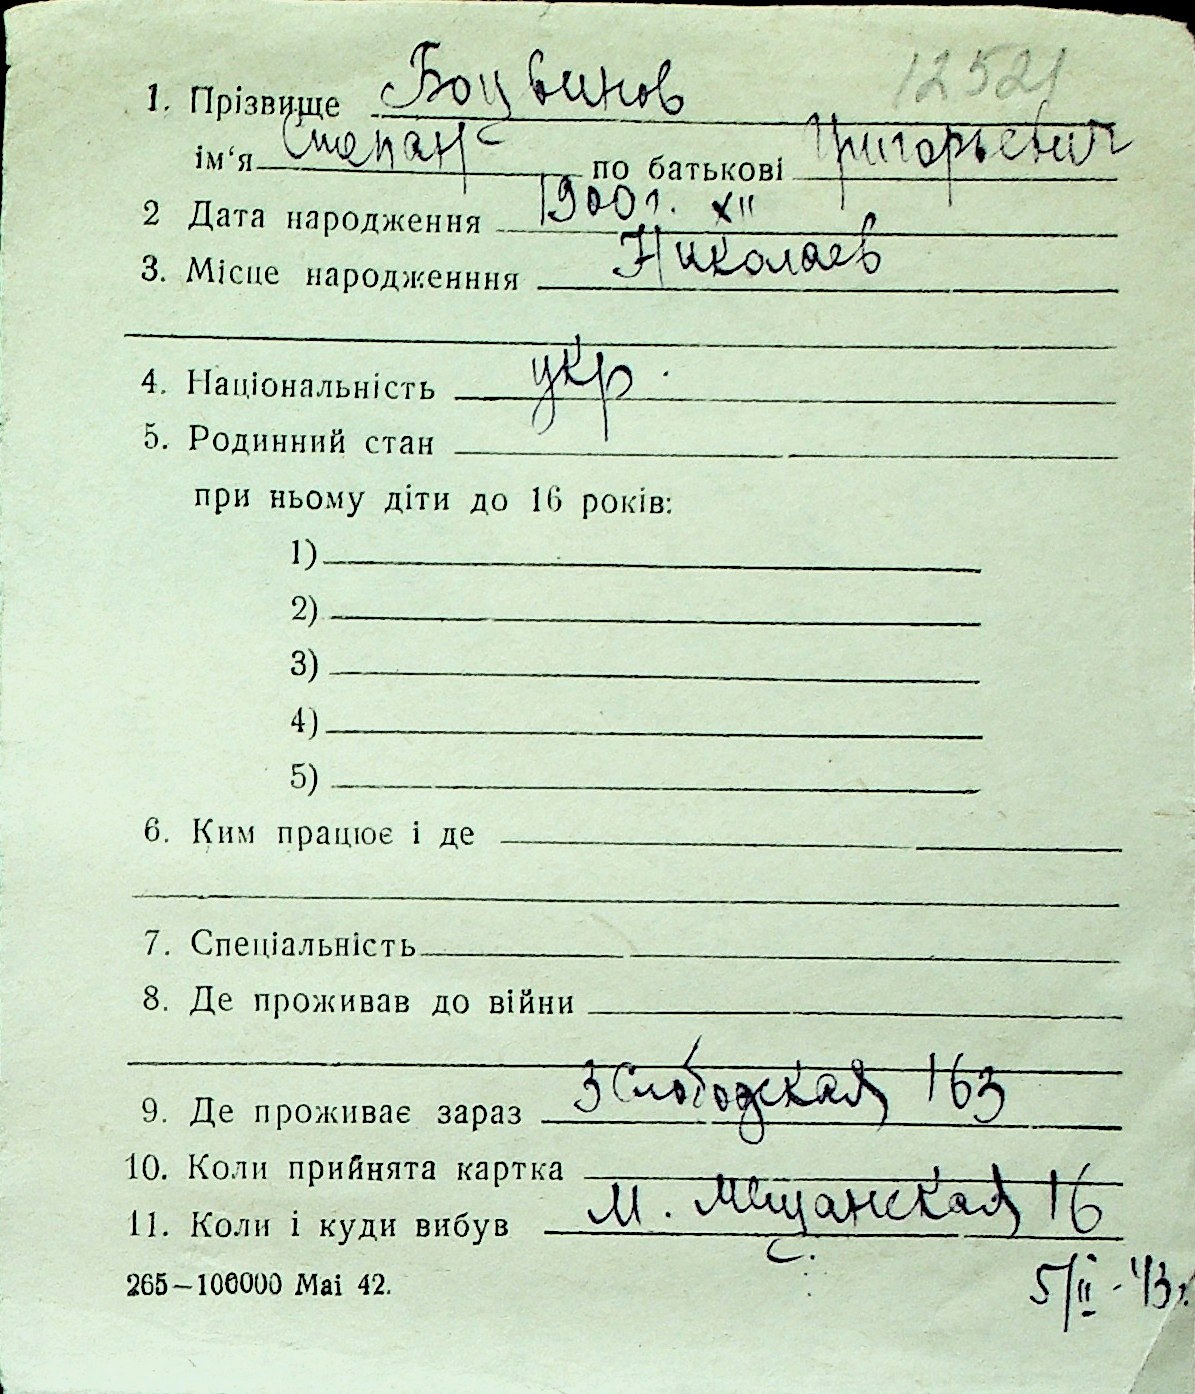 12521
1. Прізвище Боцвинов
ім‘я Степан по батькові Григорьевич
2 Дата народження 1900 г. XII
3. Місце народженння Николаев
4. Національність укр.
5. Родинний стан
при ньому діти до 16 років:
1)
2)
3)
4)
5)
6. Ким працює і де
7. Спеціальність
8. Де проживав до війни
9. Де проживає зараз 3 Слободская 163
10. Коли прийнята картка
11. Коли і куди вибув М. Мещанская 16
265—100000 Mai 42. 5/II - 43 г.